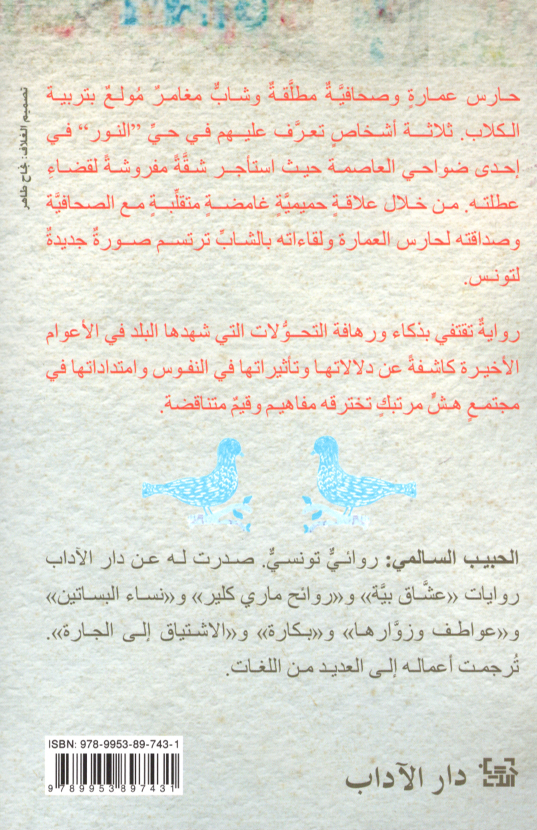 حارس عمارةٍ وصحافيَّةٌ مطلَّقةٌ وشابٌّ مغامرٌ مُولعٌ بتربية
الكلاب. ثلاثة أشخاصٍ تعرَّف عليهم في حيِّ ”النور“ في
إحدى ضواحي العاصمة حيث استأجر شقَّةً مفروشةً لقضاءِ
عطلته. من خلال علاقةٍ حميميَّةٍ غامضةٍ متقلِّبةٍ مع الصحافيَّة
وصداقته لحارس العمارة ولقاءاته بالشابِّ ترتسم صورةٌ جديدةٌ
لتونس.
روايةٌ تقتفي بذكاء ورهافة التحوُّلات التي شهدها البلد في الأعوام
الأخيرة كاشفةً عن دلالاتها وتأثيراتها في النفوس وامتداداتها في
مجتمعٍ هشٍّ مرتبكٍ تخترقه مفاهيم وقيمٌ متناقضة.
الحبيب السالمي: روائيٌّ تونسيٌّ. صدرت له عن دار الآداب
روايات «عشَّاق بيَّة» و«روائح ماري كلير» و«نساء البساتين»
و«عواطف وزوَّارها» و«بكارة» و«الاشتياق إلى الجارة».
تُرجمت أعماله إلى العديد من اللغات.
تصميم الغلاف: نجاح طاهر
ISBN: 978-9953-89-743-1
9 789953 897431
دار الآداب